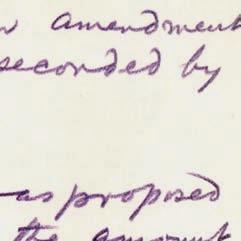 amendment
seconded by
as proposed
the amount